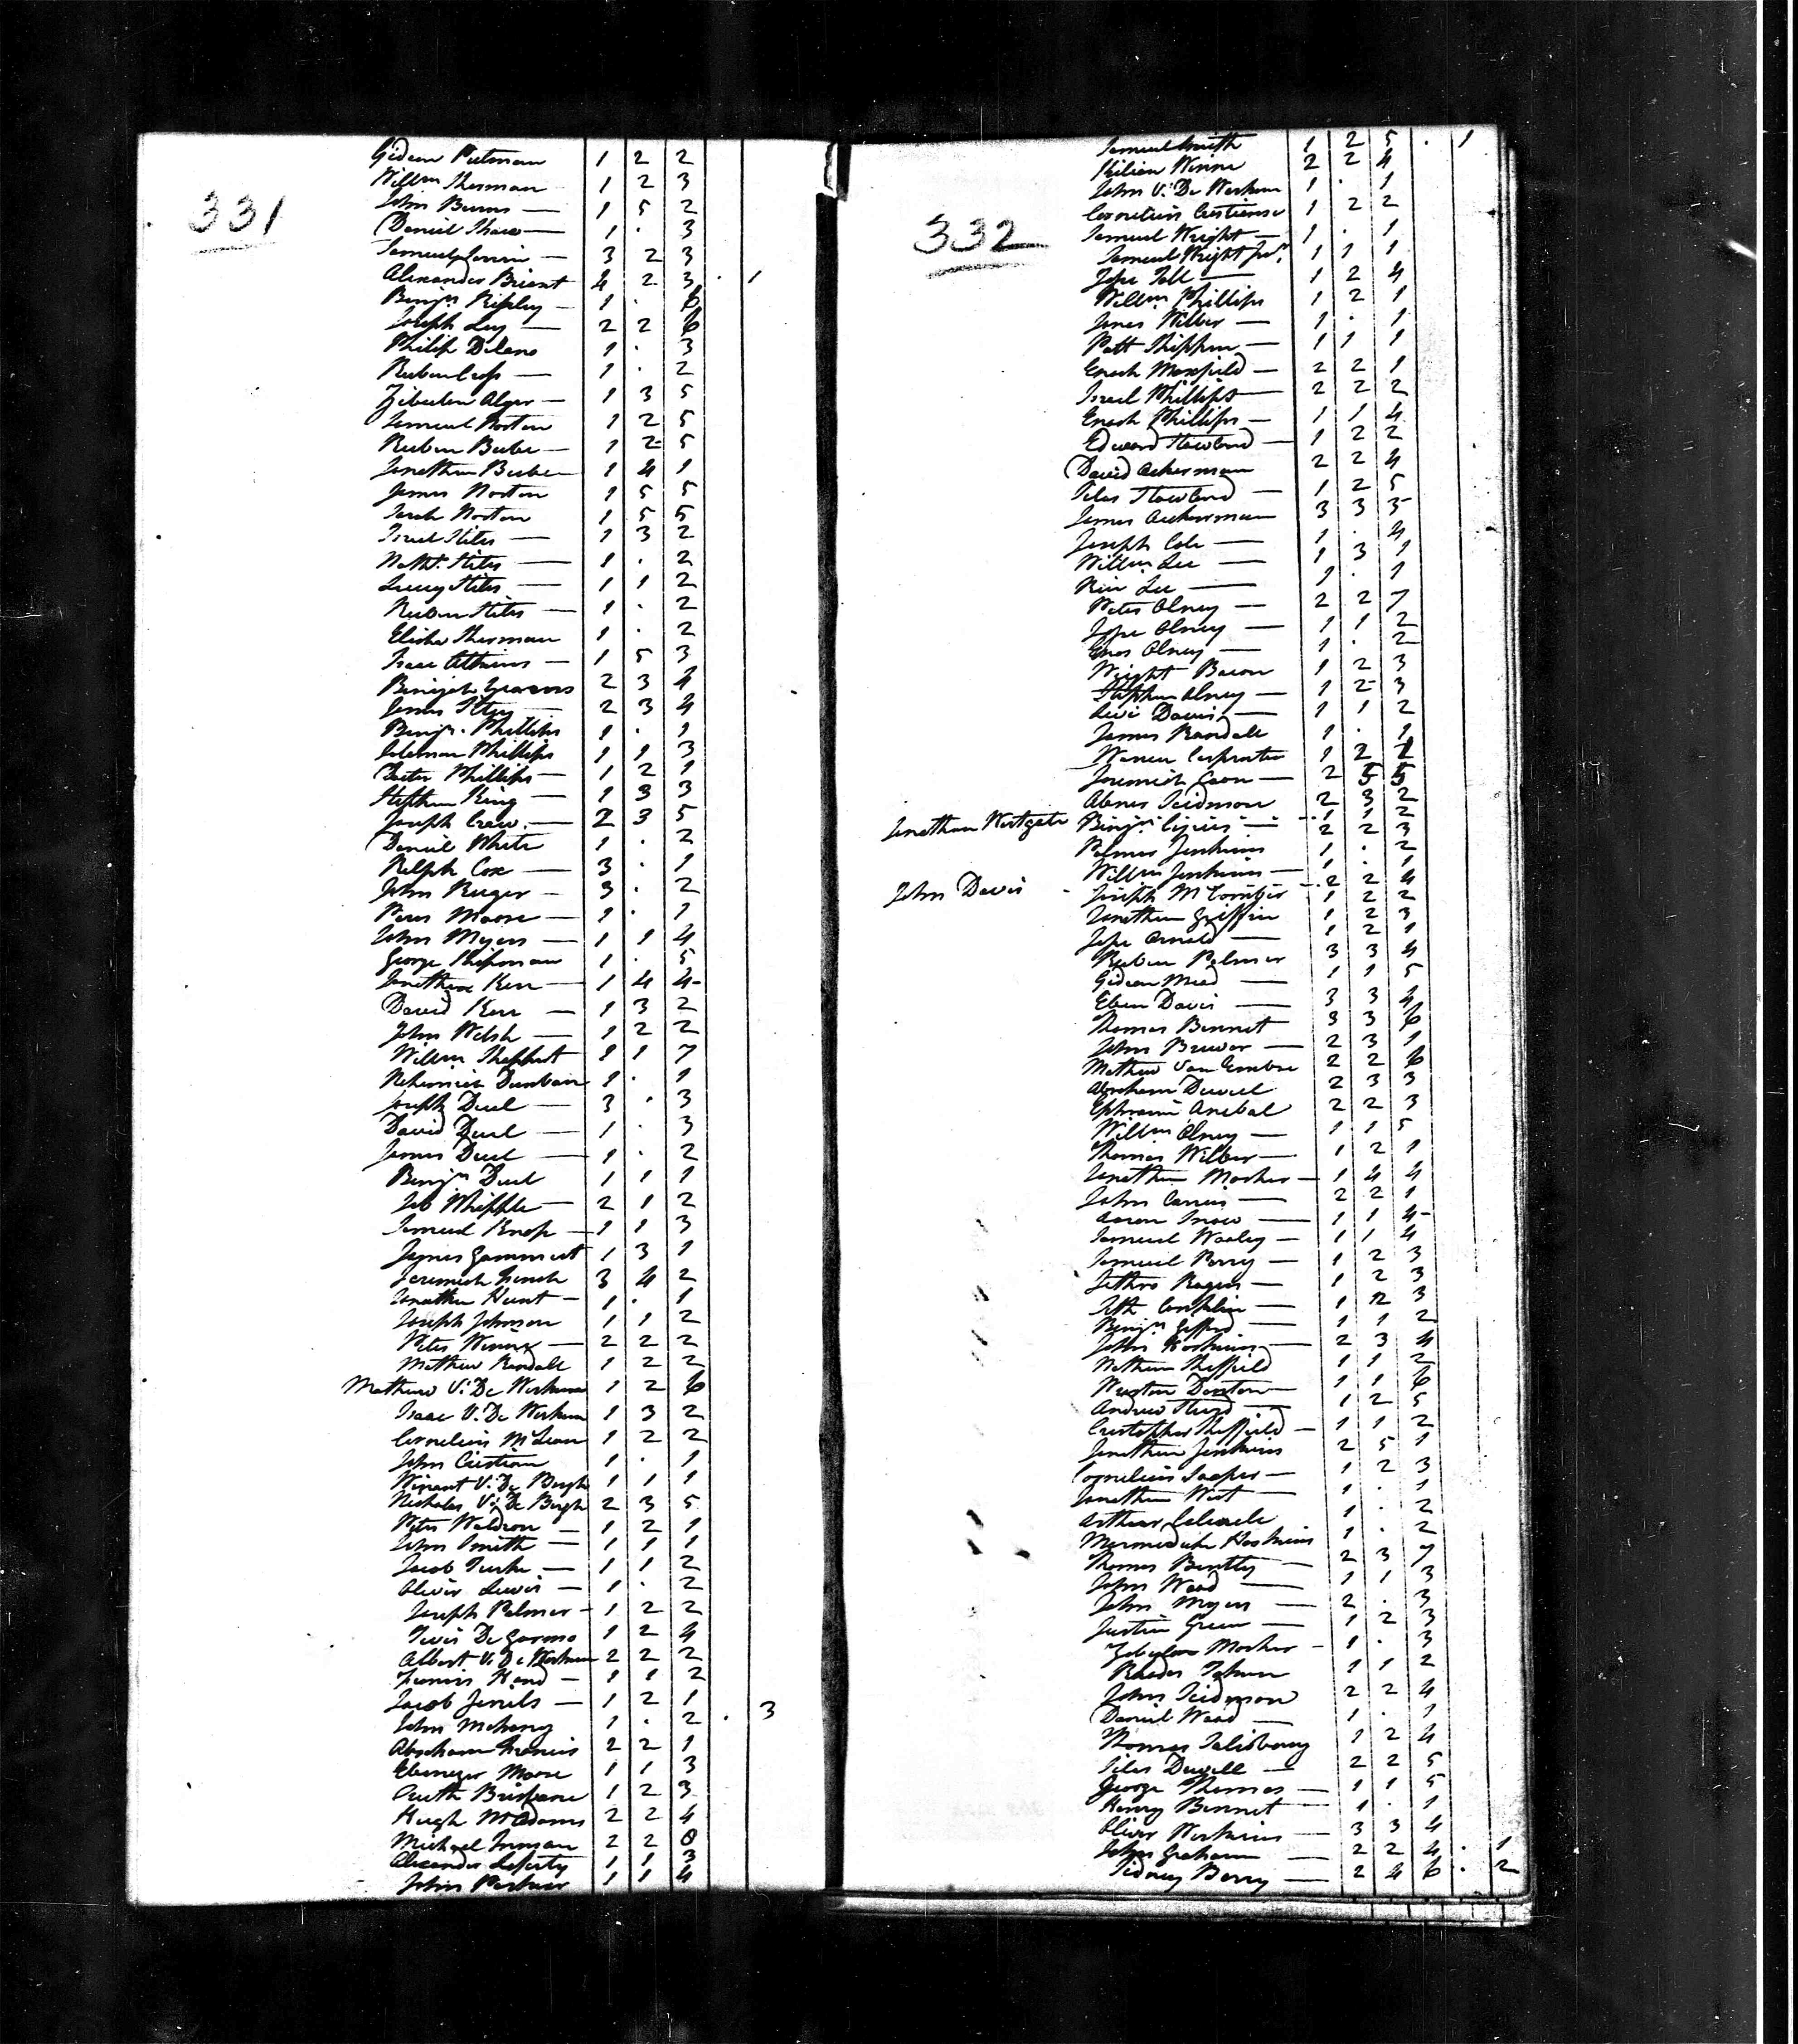 331
Gideon Putman 1 2 2
Willm Sherman 1 2 3
John Burns — 1 5 2
Daniel Shaw — 1 . 3
Samuel — 3 2 3
Alexander Briant 4 2 3 . 1
Benjn Ripley — 1 . 6
Joseph Luy — 2 2 6
Philip Delano 1 . 3
Reuben Cross — 1 . 2
Zibeulon Alger — 1 3 5
Samuel Norton 1 2 5
Reuben Beebe — 1 2 5
Jonathan Beebe 1 4 1
James Norton 1 5 5
Sarah Norton 1 5 5
Israel Stiles — 1 3 2
Nathl. Stiles — 1 . 2
Luccy Stiles — 1 1 2
Reuben Stiles — 1 . 2
Elisha Sherman 1 . 2
Isaac Atkins — 1 5 3
Benijah 2 3 4
James — 2 3 4
Benjn. Phillips 1 . 1
Coleman Phillips 1 1 3
Phillips — 1 2 1
Stephen King — 1 3 3
Joseph Craw. — 2 3 5
Daniel White 1 . 2
Relph Cox — 3 . 1
John Ruger — 3 . 2
Peres Moore — 1 . 1
John Myers — 1 1 4
George Shipman 1 . 5
Jonathan Kerr — 1 4 4
David Kerr — 1 3 2
John Welsh — 1 2 2
Willm Shephert 1 1 7
Nehemiah Dunbar 1 . 1
Joseph Duel — 3 . 3
David Duel — 1 . 3
James Duel — 1 . 2
Benjn Duel 1 1 1
Job Whipple — 2 1 2
Samuel Knap — 1 1 3
James Gammut 1 3 1
Jeremiah French 3 4 2
Jonathan Hunt — 1 . 1
Joseph Johnson 1 1 2
Peter Winne — 2 2 2
Mathew Randall 1 2 2
Mathew V. De Werken 1 2 6
Isaac V. De Werken 1 3 2
Cornelius McLean 1 2 2
John Cristian 1 . 1
Winant V. De Bergh 1 1 1
Nicholas V. De Bergh 2 3 5
Peter Waldron — 1 2 1
John Smith — 1 1 1
Jacob — 1 1 2
Oliver Lewis — 1 . 2
Joseph Palmer — 1 2 2
De Garmo 1 2 4
Albert V. De Werken 2 2 2
Francis Hand — 1 1 2
Jacob — 1 2 1
John 1 . 2 . 3
Abraham Francis 2 2 1
Ebenezer Moore 1 1 3
Ruth Brisbane 1 2 3
Hugh McAdams 2 2 4
Michael Inman 2 2 0
Alexander Laferty 1 1 3
John Parker 1 1 4
332
Samuel Smith 1 2 5 . 1
Kilian Winne 2 2 4
John V. De Werken 1 . 1
Cornelius Cristianse 1 2 2
Samuel Wright — 1 . 1
Samuel Wright Junr. 1 1 1
Jesse Toll — 1 2 4
Willm Phillips 1 2 1
Jones Wilber — 1 . 1
Patt Shippen — 1 1 1
Enoch Maxfield — 2 2 1
Israel Phillips — 2 2 2
Enoch Phillips — 1 1 4
Edward Howland — 1 2 2
David Ackerman 2 2 4
Silas Howland — 1 2 5
James Ackerman 3 3 3
Joseph Cole — 1 . 4
Willm Lee — 1 3 1
Lee — 1 . 1
Peter Olney — 2 2 7
Jesse Olney — 1 1 2
Enos Olney — 1 . 2
Wright Bacon 1 2 3
Stephen Olney — 1 2 3
Levi Davis — 1 1 2
James Randall 1 . 1
Warren Carpenter 1 2 2
Jeremiah Coon — 2 5 5
Abner Seidmore 2 3 2
Jonathan Westgate 1 1 2
Benjn — 2 2 3
Palmer Jenkins 1 . 2
Willm Jenkins — 1 . 1
John Davis - 2 2 4
Joseph McComber 1 2 2
Jonathan Griffin 1 2 3
Jesse Arnold — 1 2 1
Reuben Palmer 3 3 4
Gideon Mead — 1 1 5
Eben Davis — 3 3 4
Thomas Bennet 3 3 6
John Brewer — 2 3 1
Mathew Van 2 2 6
Abraham Duvel 2 3 3
Ephraim Anebal 2 2 3
Willm Olney — 1 1 5
Thomas Wilber — 1 2 1
Jonathan Mosher — 1 4 4
John — 2 2 1
Aaron Snow — 1 1 4
Samuel Wooley — 1 1 4
Samuel Perry — 1 2 3
Jethro Rogers — 1 2 3
Seth Conklin — 1 2 3
Benjn Gifford — 1 1 2
John Hoskins — 2 3 4
Nathan Sheffield 1 1 2
Weston Denton — 1 1 6
Andrew — 1 2 5
Cristopher Sheffield — 1 1 2
Jonathan Jenkins 2 5 1
Cornelius — 1 2 3
Jonathan West — 1 . 1
Arthur 1 . 2
Mermeduke Hoskins 1 . 2
Thomas Bently — 2 3 7
John Wood — 1 1 3
John Myers — 2 . 3
Justin Green — 1 2 3
Zebulon Mosher — 1 . 3
1 1 2
John Seidmore 2 2 4
Daniel Wood — 1 . 1
Thomas Salisbury 1 2 4
Silas Duvell — 2 2 5
George Thomas — 1 1 5
Henry Bennet — 1 . 1
Oliver — 3 3 4
John Graham — 2 2 4 . 1
Sidney Berry — 2 4 6 . 2